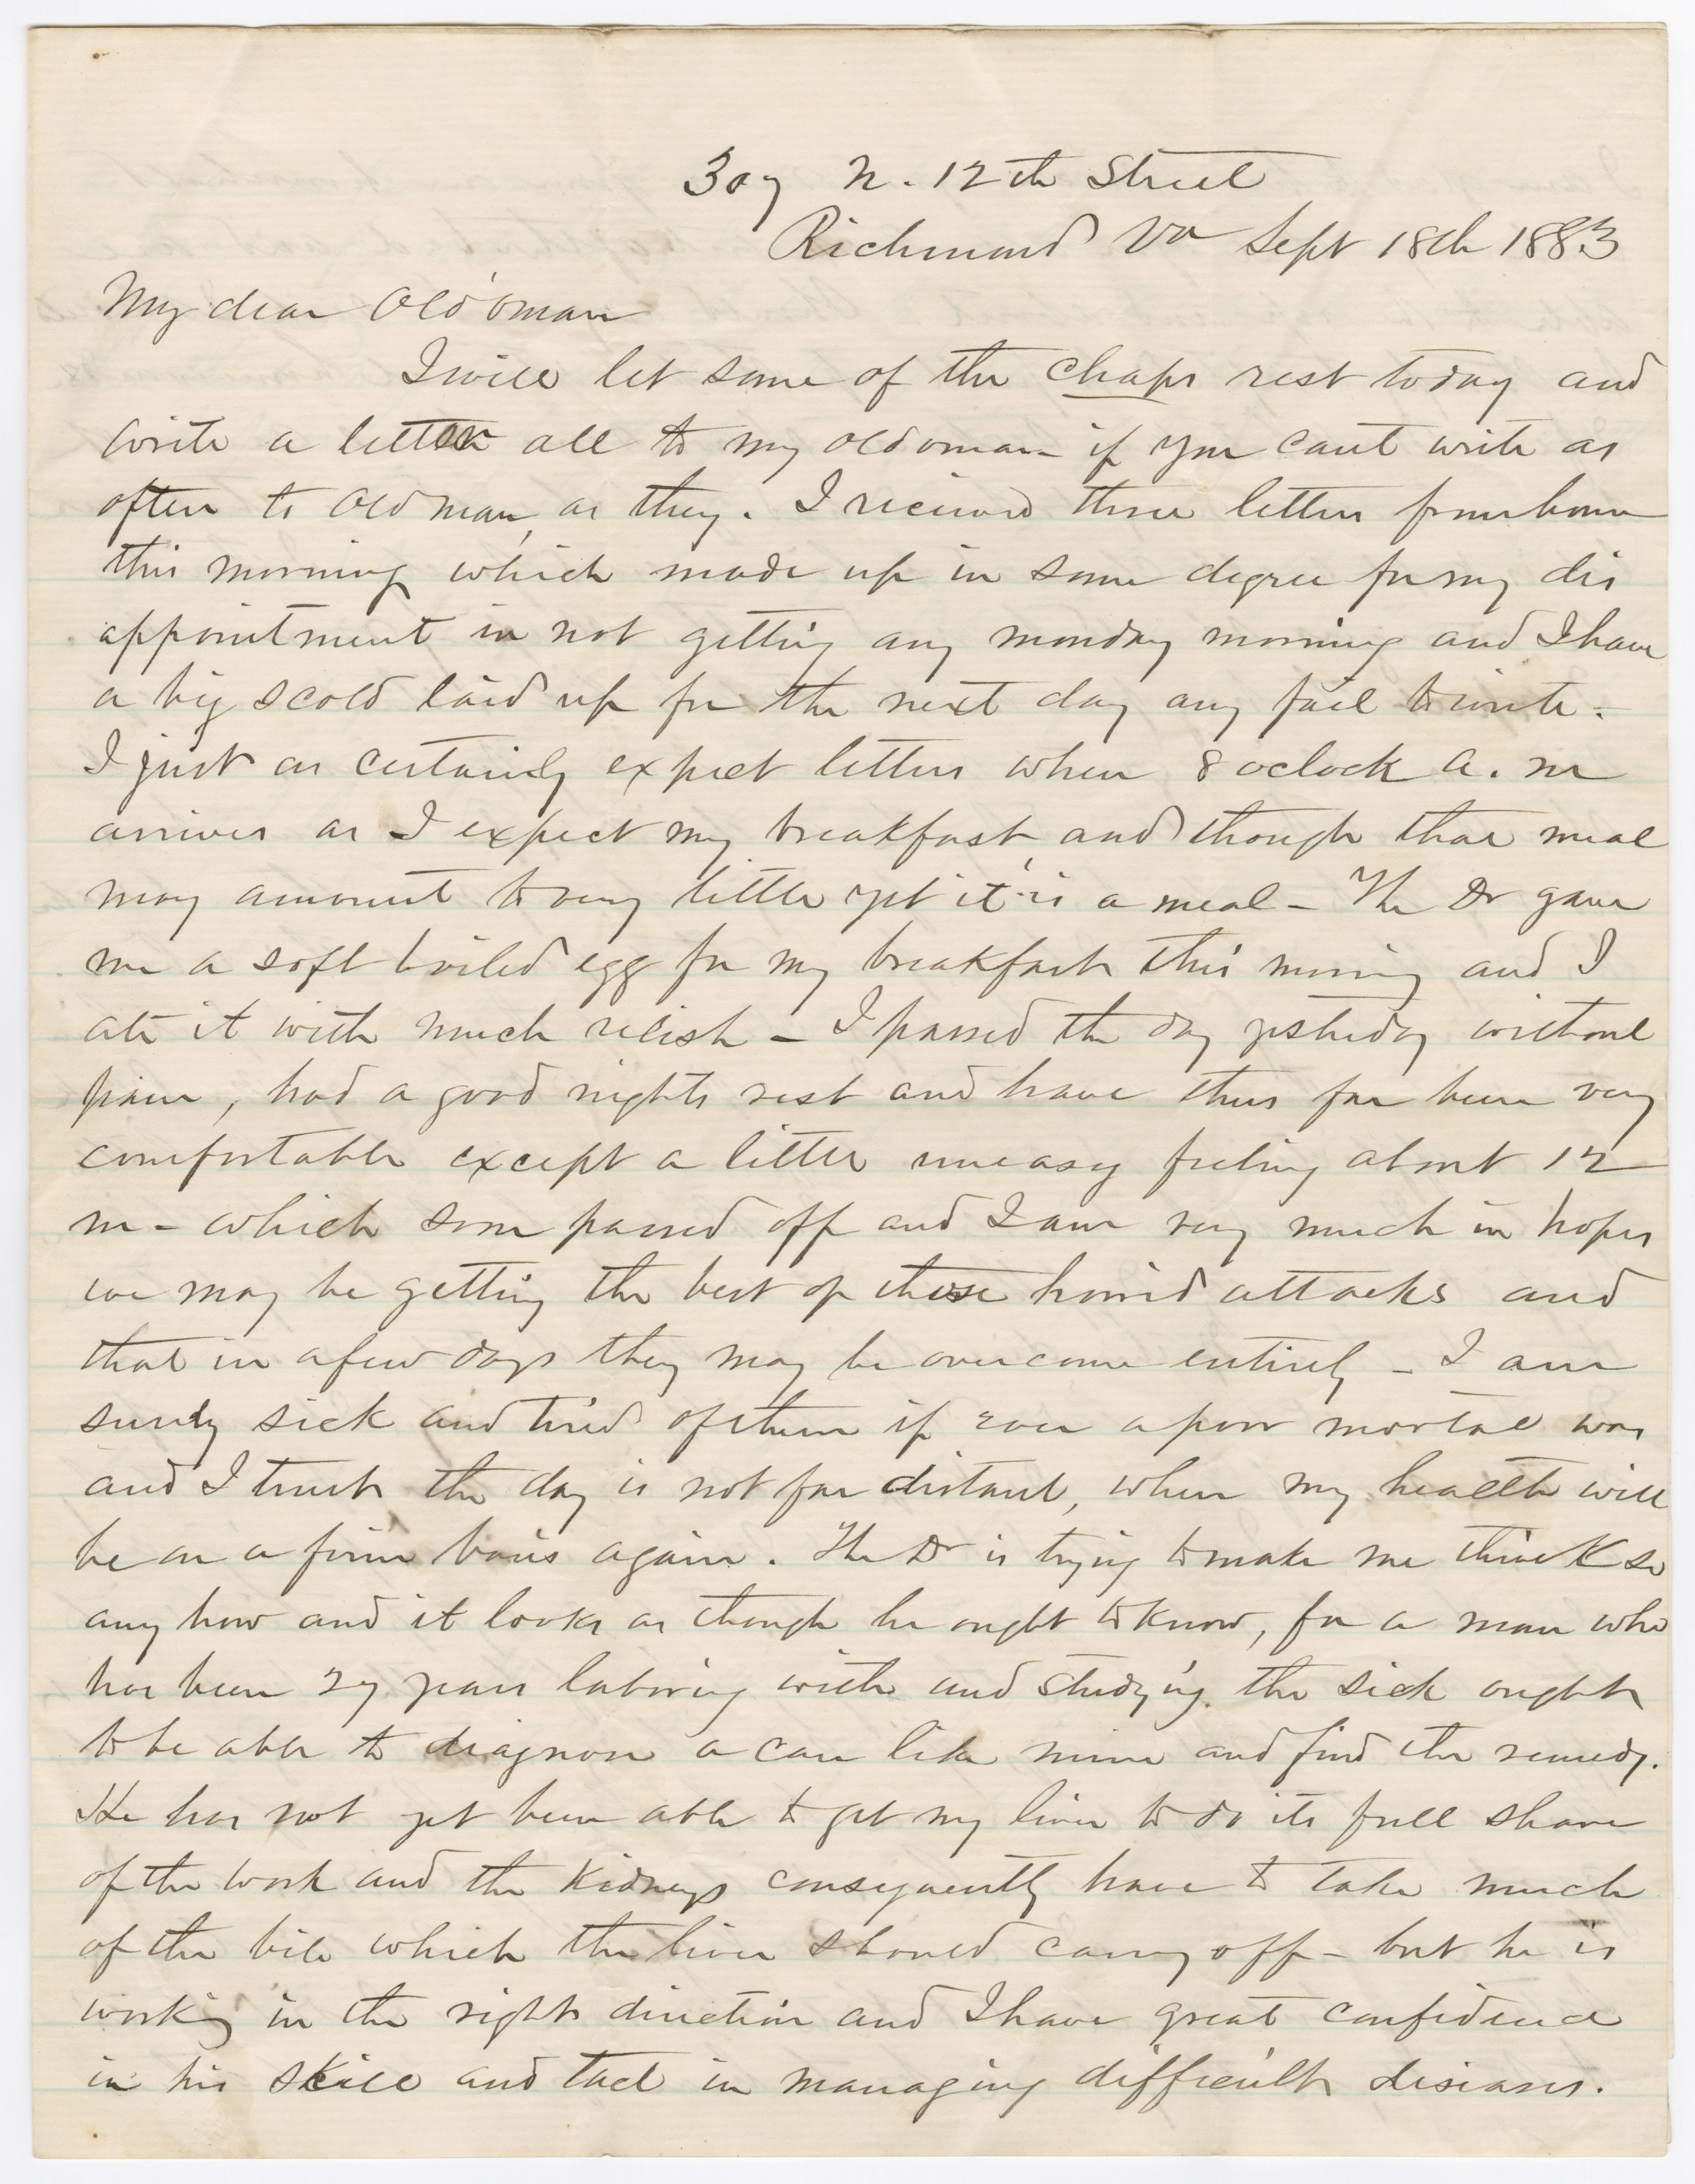 307 N. 12th Street
Richmond Va Sept 18th 1883
My dear Old'oman
I will let some of the chaps rest today and
write a letter all to my old oman if you cant write as
often to Old man, as they. I received three letters from home
this morning which made up in some degree for my dis
appointment in not getting any monday morning and I have
a big scold laid up for the next day any fail to write.
I just as certainly expect letters when 8 oclock a. m
arrives as I expect my breakfast, and though that meal
may amount to very little yet it is a meal - The Dr gave
me a soft boiled egg for my breakfast this morning and I
ate it with much relish - I passed the day yesterday without
pain, had a good nights rest and have thus far been very
comfortable except a little uneasy feeling about 12
m - which soon passed off and I am very much in hopes
we may be getting the best of these horrid attacks and
that in a few days they may be overcome entirely - I am
surely sick and tired of them if ever a poor mortal was
and I trust the day is not far distant, when my health will
be on a firm basis again. The Dr is trying to make me think so
any how and it looks as though he ought to know, for a man who
has been 27 years laboring with and studying the sick ought
to be able to diagnose a case like mine and find the remedy.
He has not yet been able to get my liver to do its full share
of the work and the kidneys consequently have to take much
of the bile which the liver should carry off - but he is
working in the right direction and I have great confidence
in his skill and tact in managing difficult diseases.